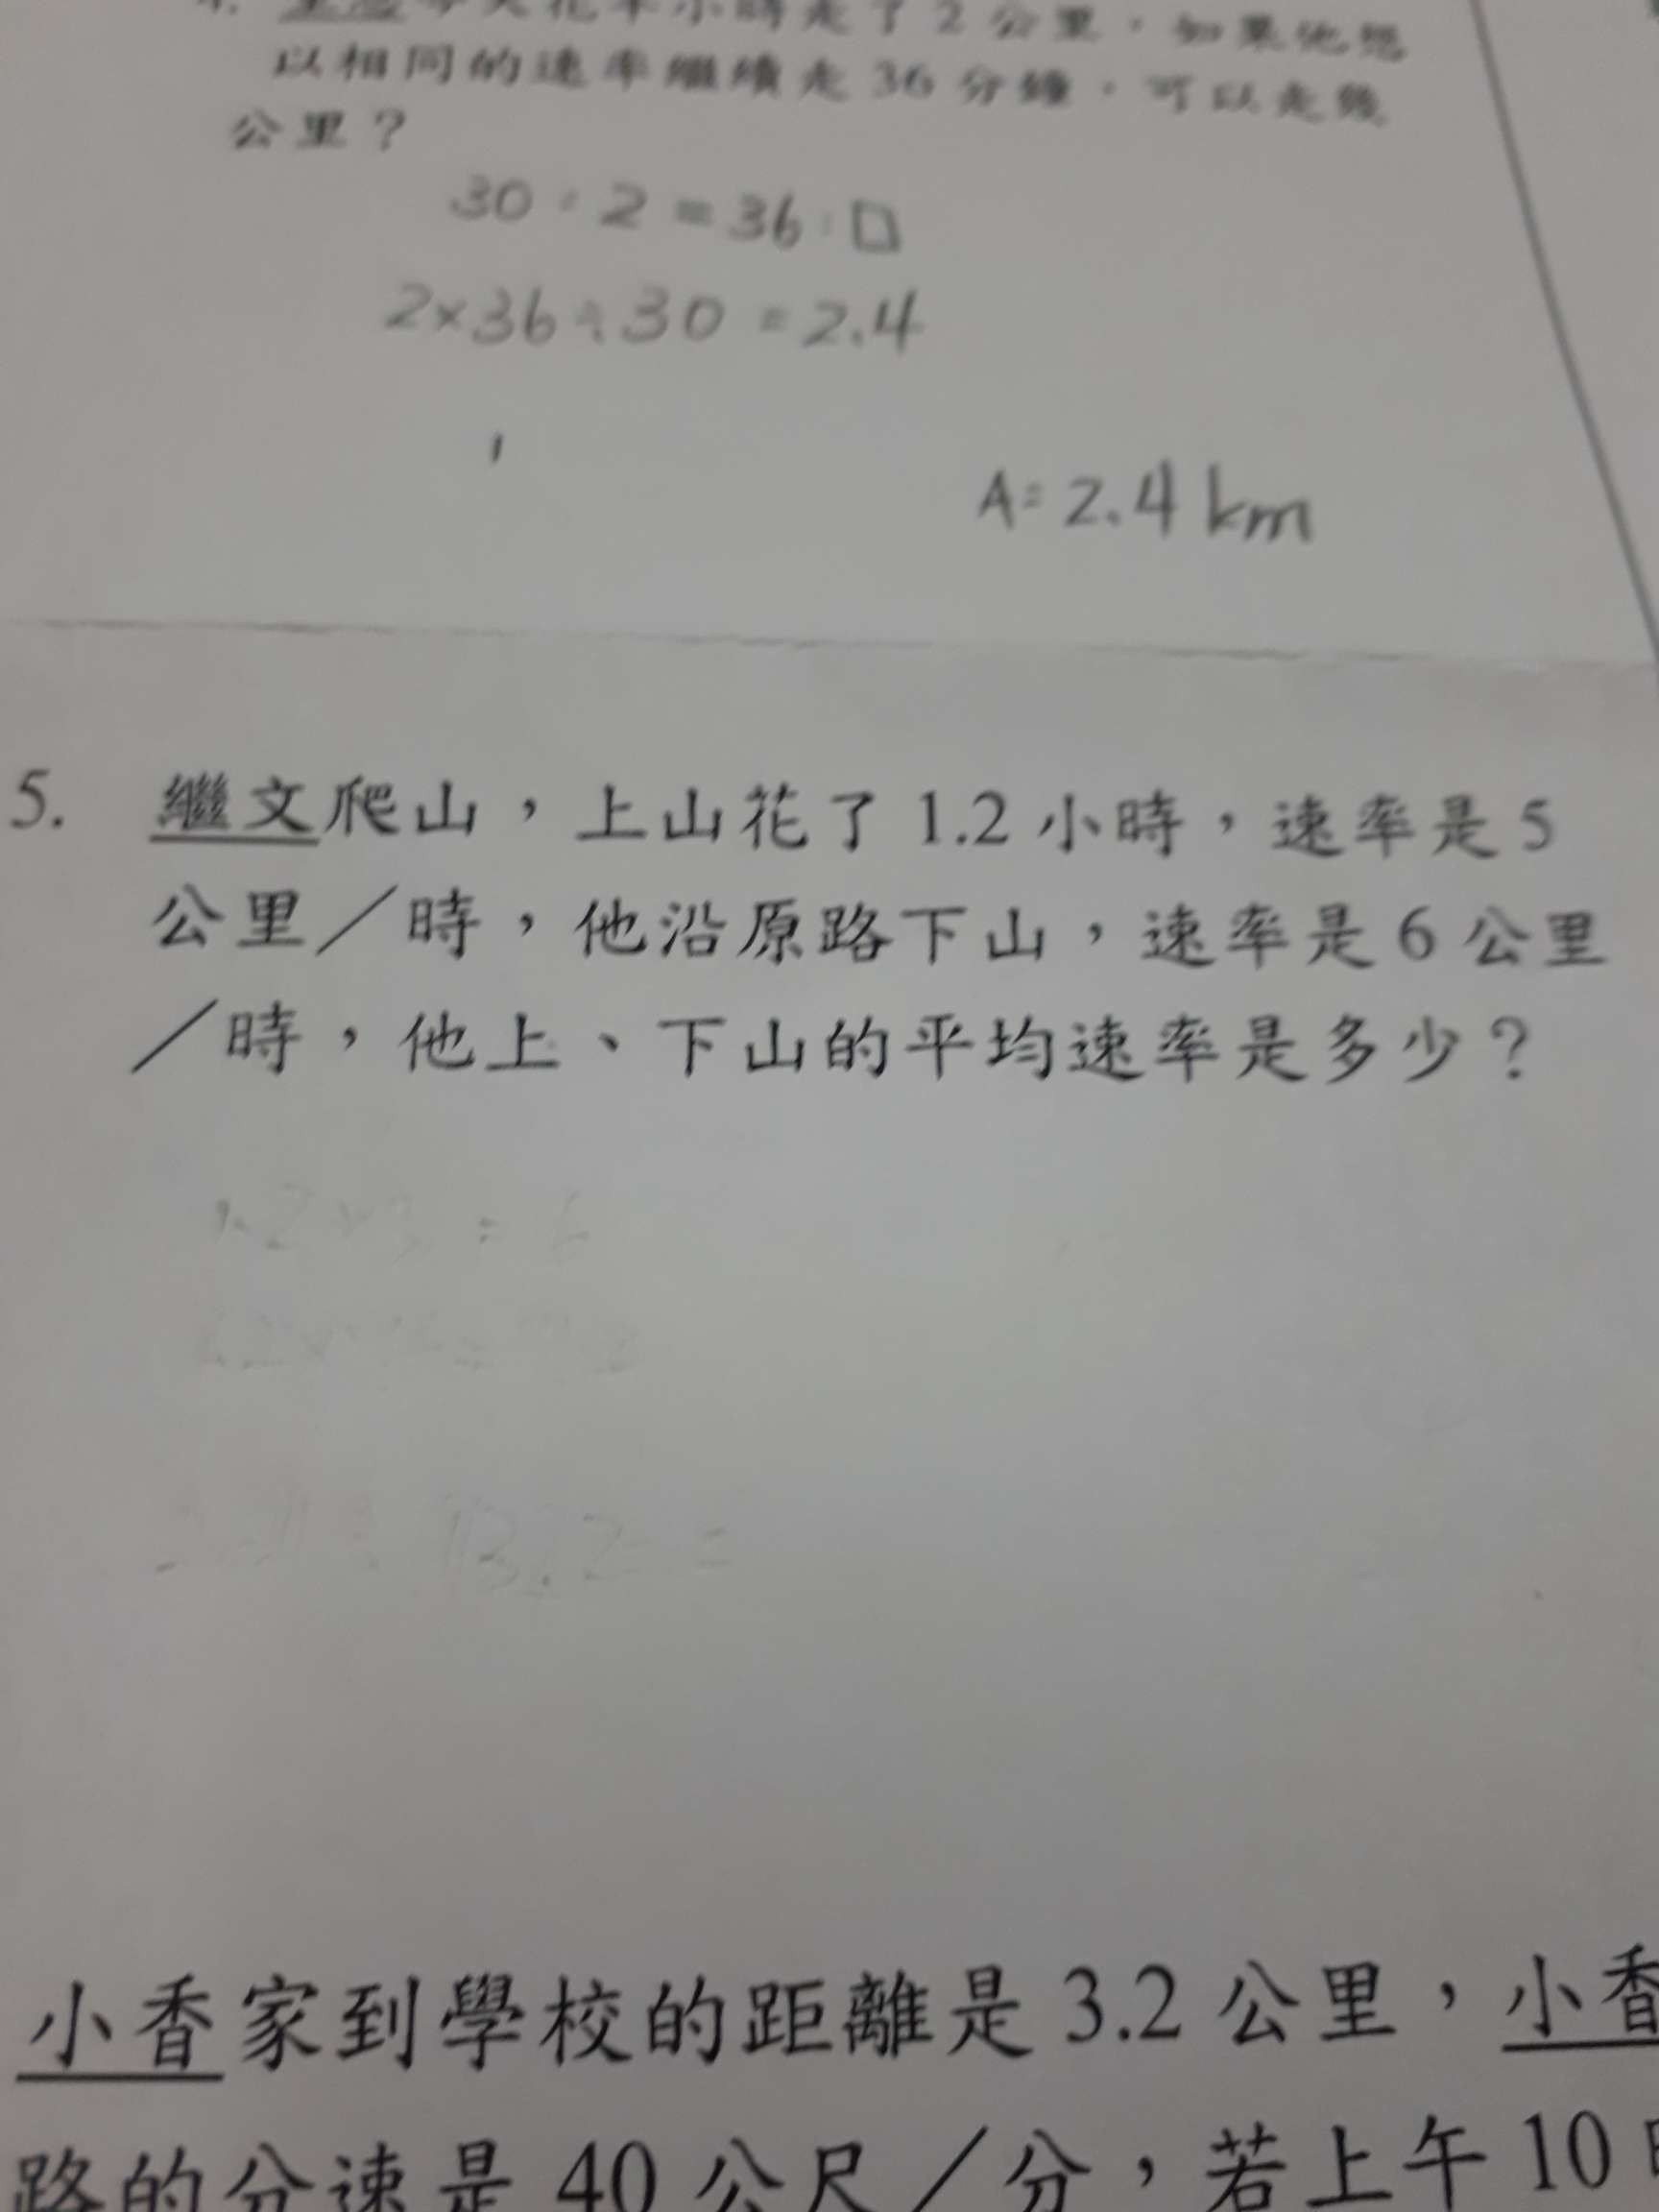 花半小時走了2公里，如果他想
以相同的速率繼續走36分鐘，可以走幾
公里？
30:2=36:□
2×36÷30=2.4
A=2.4km
5. 繼文爬山，上山花了1.2小時，速率是5
公里／時，他沿原路下山，速率是6公里
／時，他上、下山的平均速率是多少？
小香家到學校的距離是3.2公里，小香
路的分速是40公尺／分，若上午10